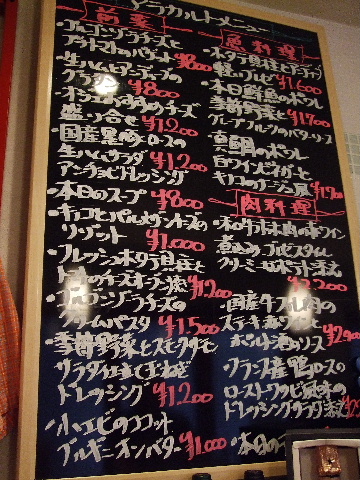 アラカルトメニュー
前菜
・ゴルゴンゾーラチーズと
ドライトマトのバゲット ¥800
・生ハムとアーティチョークの
グラタン ¥800
・オシェフおすすめのチーズ
盛り合せ ¥1.200
・国産黒豚ロースの
生ハムサラダ ¥1.200
アンチョビドレッシング
・本日のスープ ¥800
・キノコとパルメザンチーズの
リゾット ¥1.000
・フレッシュホタテ貝柱と
トマトのチーズオーブン焼 ¥1.200
・ゴルゴンゾーラチーズの
クリームパスタ ¥1.500
・季節野菜とスモークサーモン
サラダ仕立て玉ねぎ
ドレッシング ¥1.200
・小エビのココット
ブルギニオンバター ¥1.000
魚料理
・ホタテ貝柱とアーティチョーク
軽い ¥1.600
・本日鮮魚のポワレ
季節野菜 ¥1700
グレープフルーツのバターソース
・真鯛のポワレ
白ワインビネガーと
キノコの
肉料理
・和牛ホホ肉の赤ワイン
煮込み
クリーミーなポテト添え
・国産牛フィレ肉の
ステーキ 赤ワインと
ポルト酒のソース
・フランス産鴨ロースの
ロースト ワサビ風味の
ドレッシングサラダ添え
・本日の